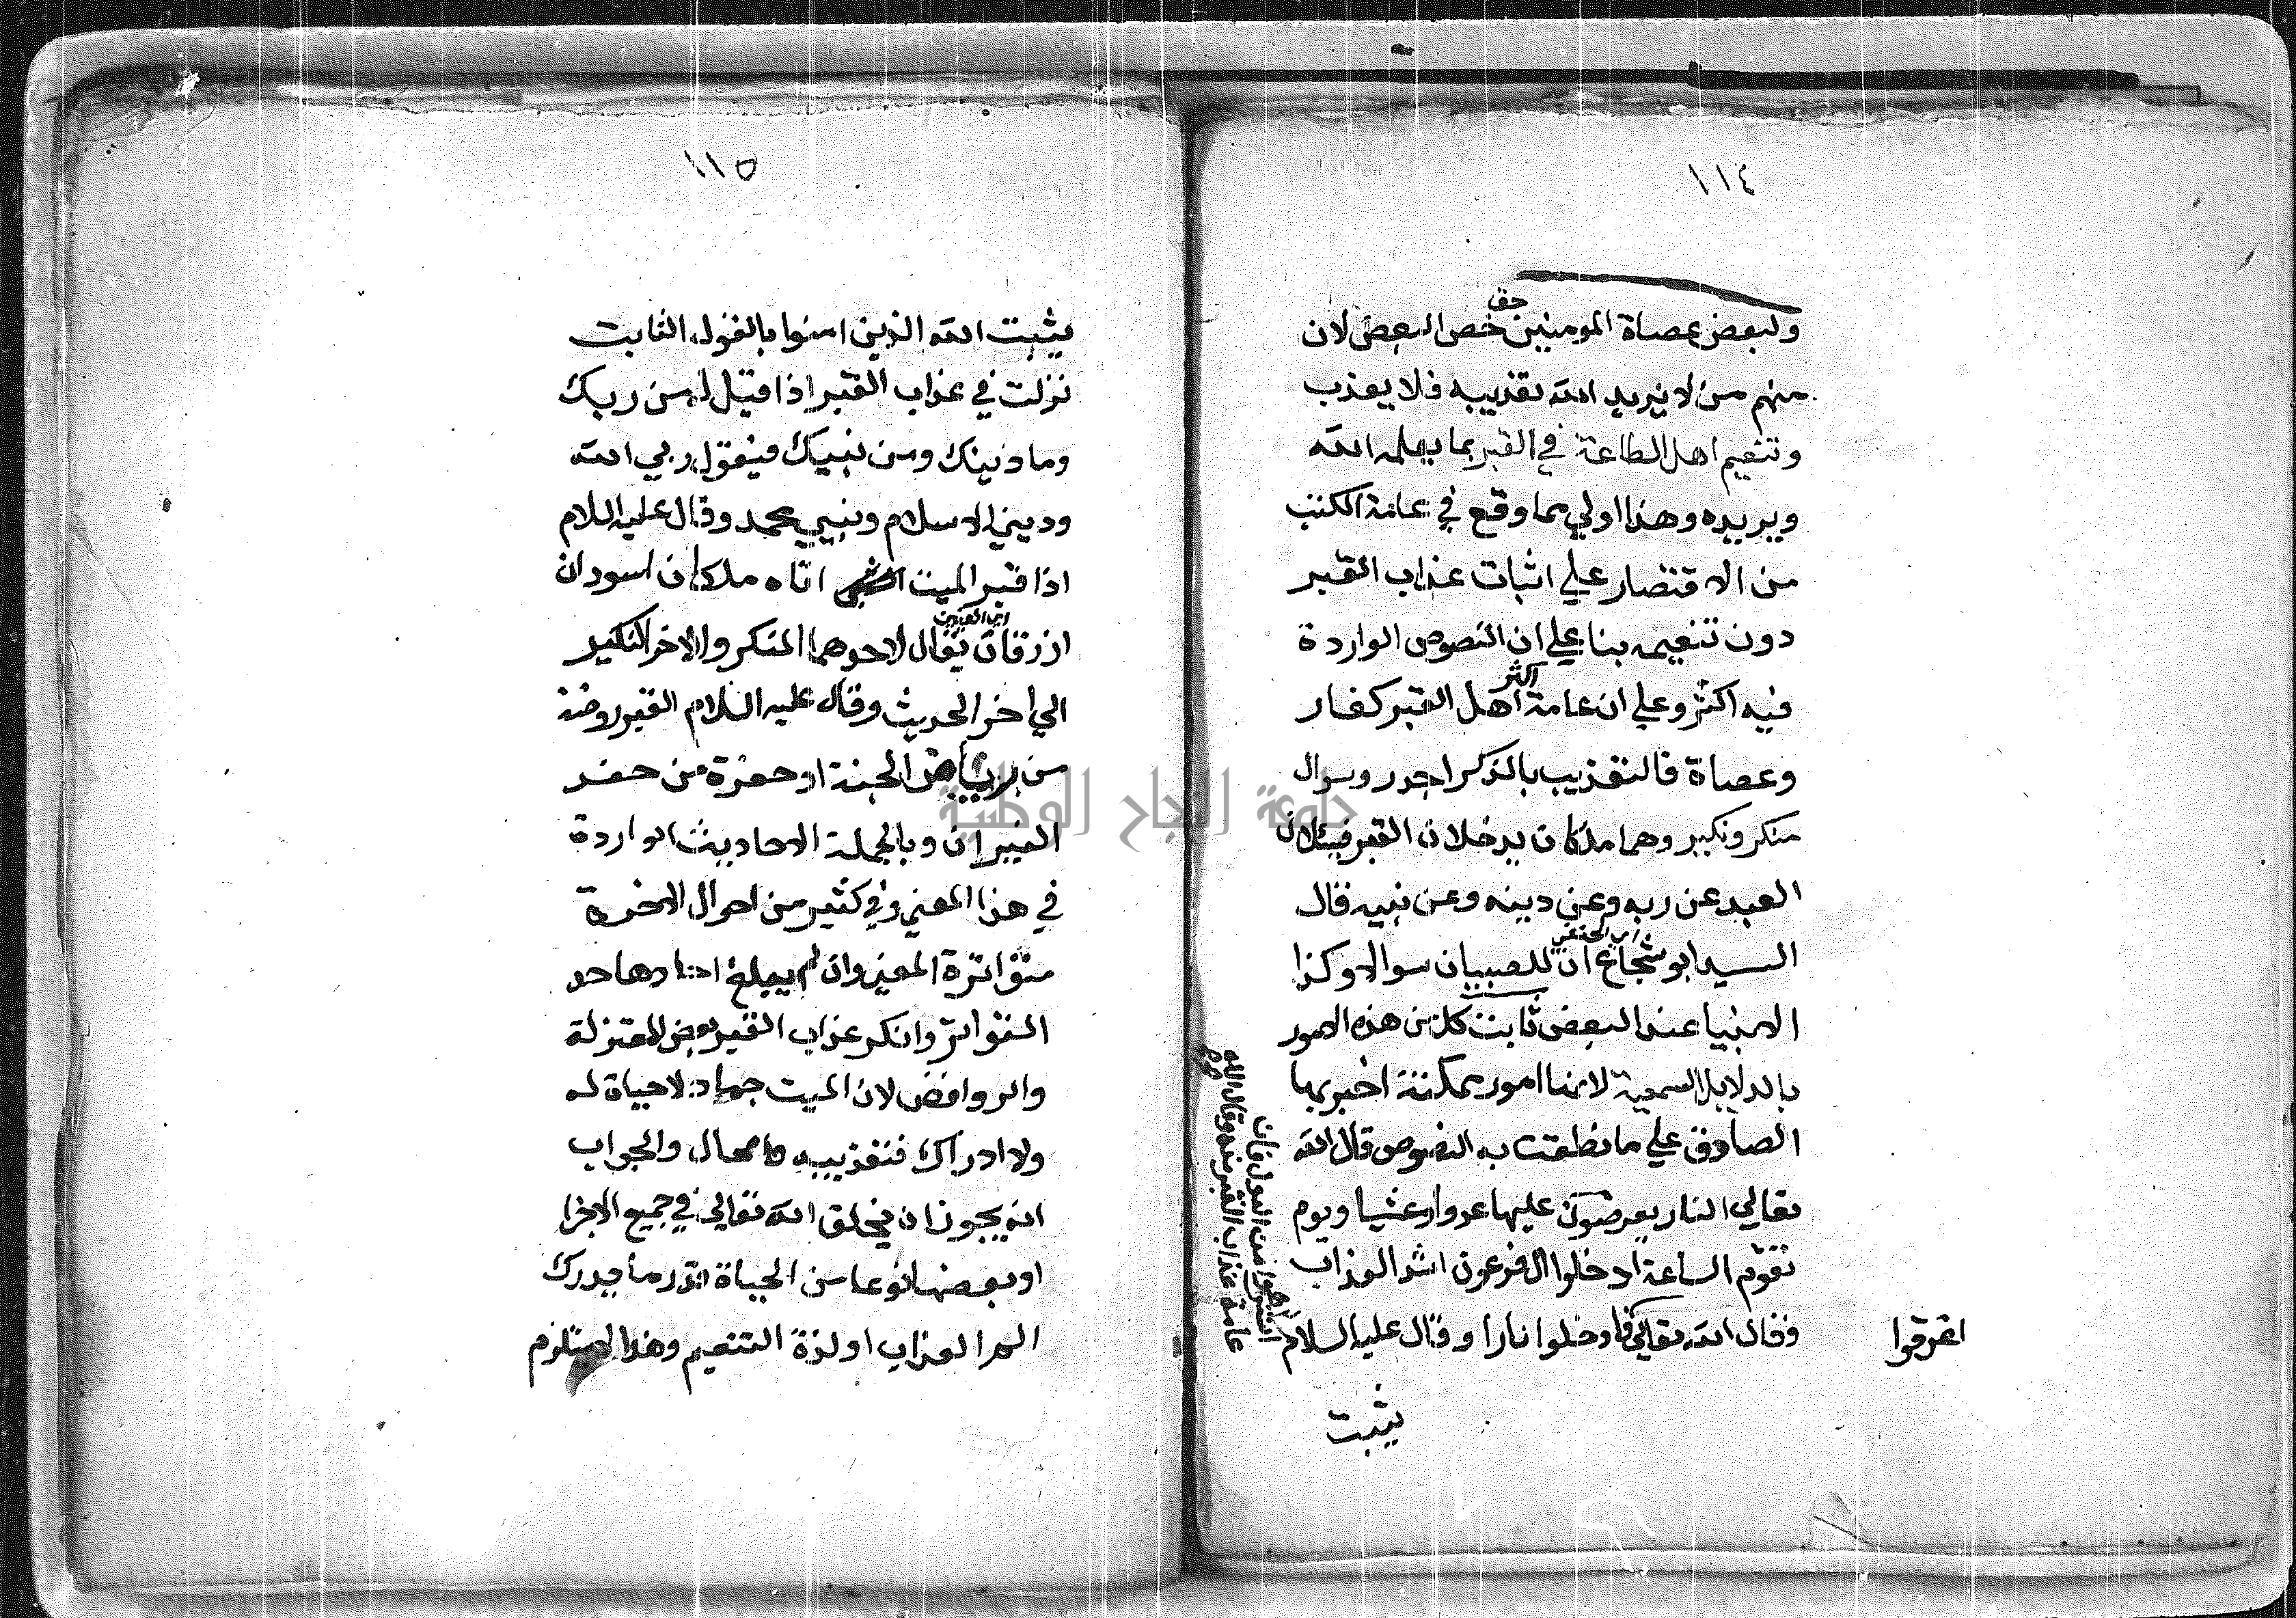 ١١٤
حق
ولبعض عصاة المومنين خص البعض لان
منهم من لا يريد الله تعذيبه فلا يعذب
وتنعيم اهل الطاعة في القبر بما يعلمه الله
ويريده وهذا اولي مما وقع في عامة الكتب
من الاقتصار علي اثبات عذاب القبر
دون تنعيمه بنا علي ان النصوص الواردة
اكثر
فيه اكثر وعلي ان عامة اهل القبر كفار
وعصاة فالتعذيب بالذكر اجدر وسوال
منكر ونكير وهما ملكان يدخلان القبر فيسالان
العبد عن ربه وعن دينه وعن نبيه قال
السيد ابو شجاع ان للصبيان سوالا وكذا
الانبيا عند البعض ثابت كل من هذه الامور
بالدلايل السمعية لانها امور ممكنة اخبر بها
الصادق علي ما نطقت به النصوص قال الله
تعالي النار يعرضون عليها غدوا وعشيا ويوم
تقوم الساعة ادخلوا ال فرعون اشد العذاب
وقال الله تعالي فادخلوا نارا وقال عليه السلام
اغرقوا
استنزهوا من البول فان
عامة عذاب القبر منه وقال الله
يثبت
١١٥
يثبت الله الذين امنوا بالقول الثابت
نزلت في عذاب القبر اذا قيل له من ربك
وما دينك ومن نبيك فيقول ربي الله
وديني الاسلام ونبيي محمد وقال عليه السلام
اذا قبر الميت اتاه ملكان اسودان
ازرقان يقال لاحدهما المنكر والاخر النكير
الي اخر الحديث وقال عليه السلام القبر روضة
من رياض الجنة او حفرة من حفر
النيران وبالجملة الاحاديث الواردة
في هذا المعني وفي كثير من احوال الاخرة
متواترة المعني وان لم يبلغ احادها حد
التواتر وانكر عذاب القبر بعض المعتزلة
والروافض لان الميت جماد لا حياة له
ولا ادراك فتعذيبه محال والجواب
انه يجوز ان يخلق الله تعالي في جميع الاجزا
او بعضها نوعا من الحياة قدر ما يدرك
الم العذاب او لذة التنعيم وهذا لا يستلزم